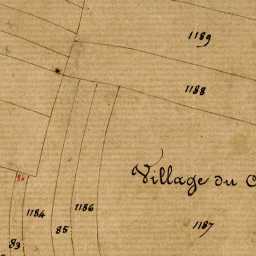 1189
1188
Village du
1184
1186
85
1187
83